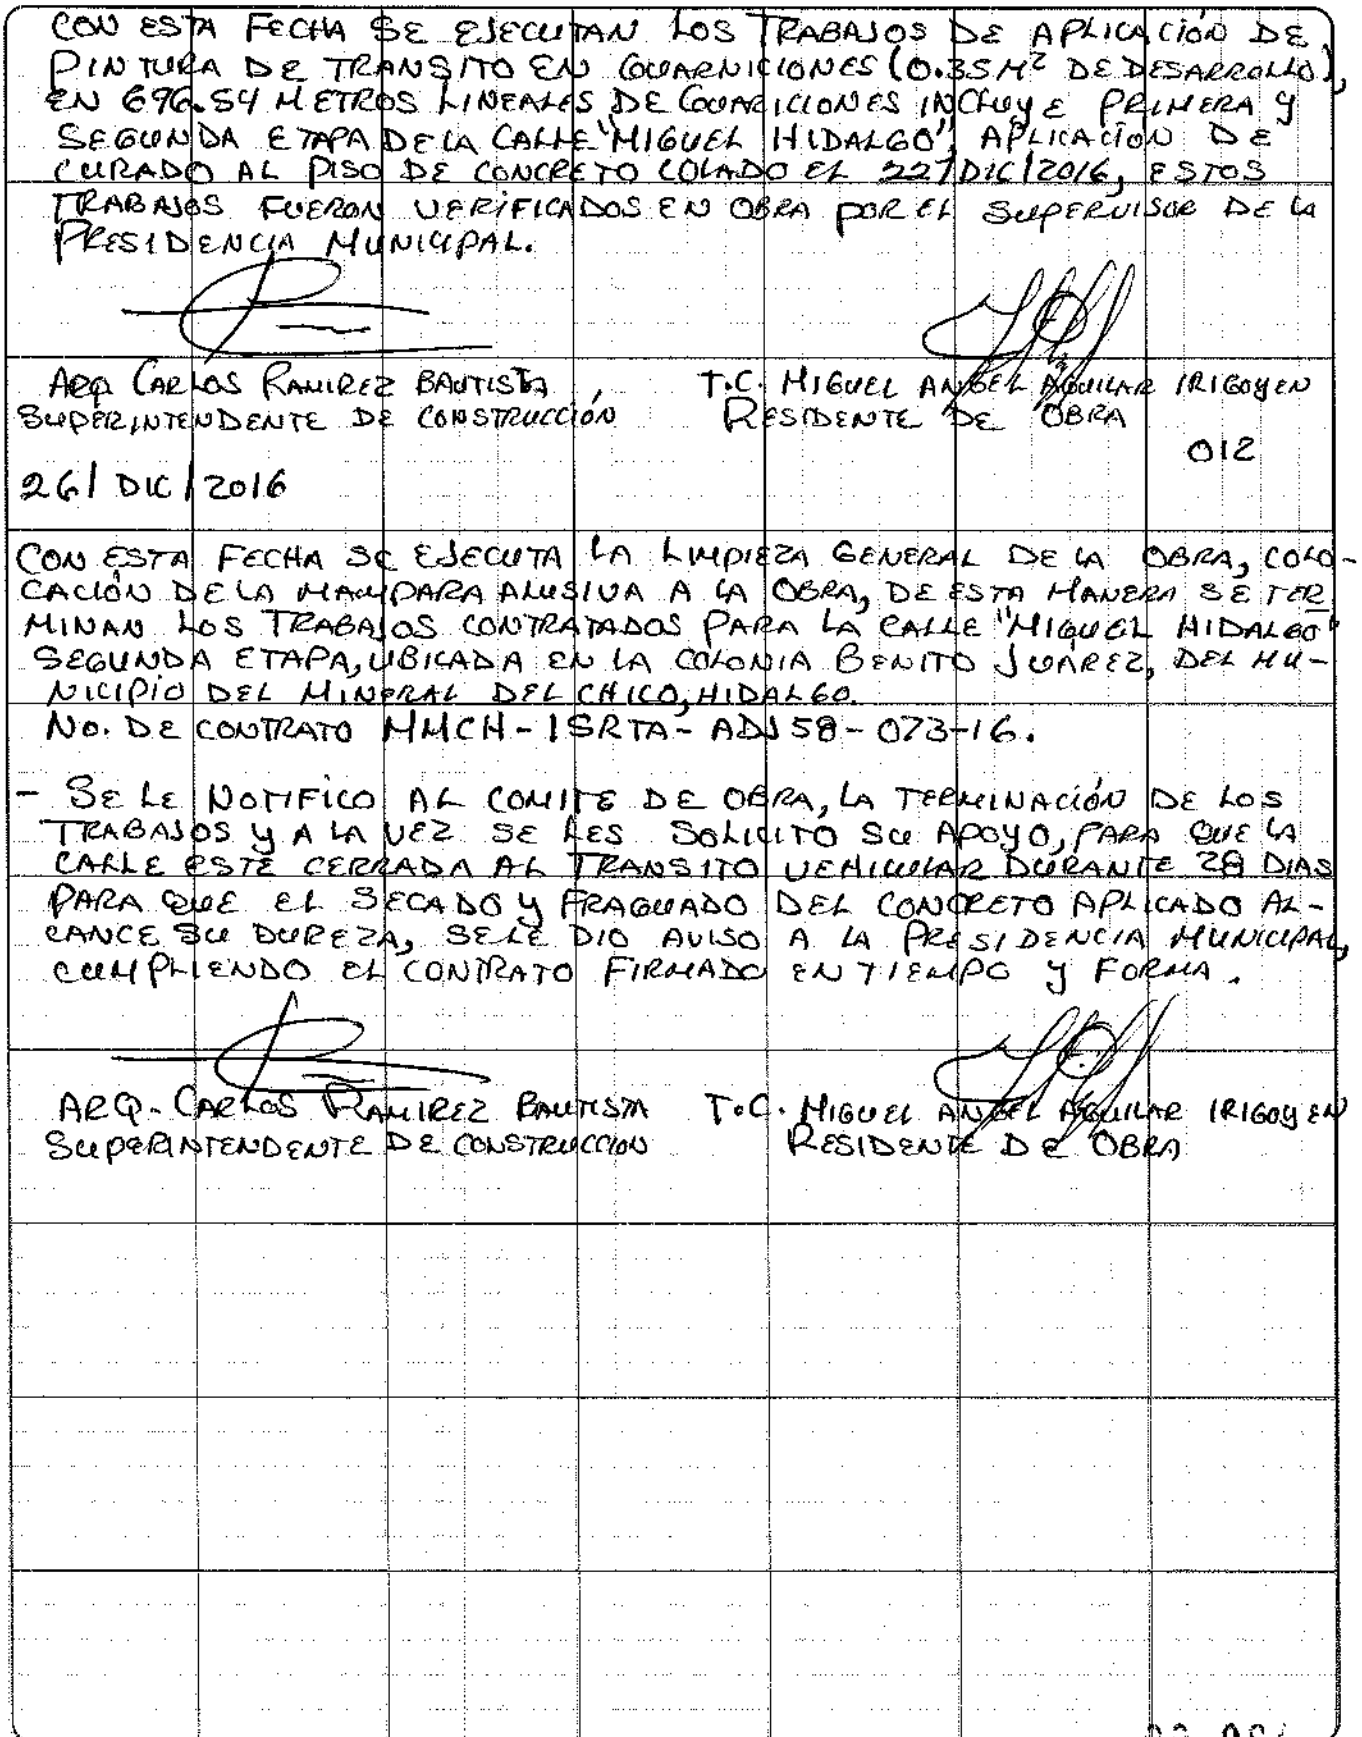 CON ESTA FECHA SE EJECUTAN LOS TRABAJOS DE APLICACIÓN DE
PINTURA DE TRANSITO EN GUARNICIONES (0.35 M² DE DESARROLLO),
EN 696.54 METROS LINEALES DE GUARICIONES INCLUYE PRIMERA Y
SEGUNDA ETAPA DE LA CALLE "MIGUEL HIDALGO", APLICACIÓN DE
CURADO AL PISO DE CONCRETO COLADO EL 22/DIC/2016, ESTOS
TRABAJOS FUERON VERIFICADOS EN OBRA POR EL SUPERVISOR DE LA
PRESIDENCIA MUNICIPAL.
ARQ CARLOS RAMIREZ BAUTISTA T.C. MIGUEL ANGEL AGUILAR IRIGOYEN
SUPERINTENDENTE DE CONSTRUCCIÓN RESIDENTE DE OBRA
012
26/DIC/2016
CON ESTA FECHA SE EJECUTA LA LIMPIEZA GENERAL DE LA OBRA, COLO-
CACIÓN DE LA MAMPARA ALUSIVA A LA OBRA, DE ESTA MANERA SE TER
MINAN LOS TRABAJOS CONTRATADOS PARA LA CALLE "MIGUEL HIDALGO"
SEGUNDA ETAPA, UBICADA EN LA COLONIA BENITO JUÁREZ, DEL MU-
NICIPIO DEL MINERAL DEL CHICO, HIDALGO.
No. DE CONTRATO MMCH-ISRTA-ADJ58-073-16.
- SE LE NOTIFICO AL COMITE DE OBRA, LA TERMINACIÓN DE LOS
TRABAJOS Y A LA VEZ SE LES SOLICITO SU APOYO, PARA QUE LA
CALLE ESTÉ CERRADA AL TRANSITO VEHICULAR DURANTE 28 DIAS
PARA QUE EL SECADO Y FRAGUADO DEL CONCRETO APLICADO AL-
CANCE SU DUREZA, SE LE DIO AVISO A LA PRESIDENCIA MUNICIPAL,
CUMPLIENDO EL CONTRATO FIRMADO EN TIEMPO Y FORMA.
ARQ. CARLOS RAMIREZ BAUTISTA T.C. MIGUEL ANGEL AGUILAR IRIGOYEN
SUPERINTENDENTE DE CONSTRUCCION RESIDENTE DE OBRA